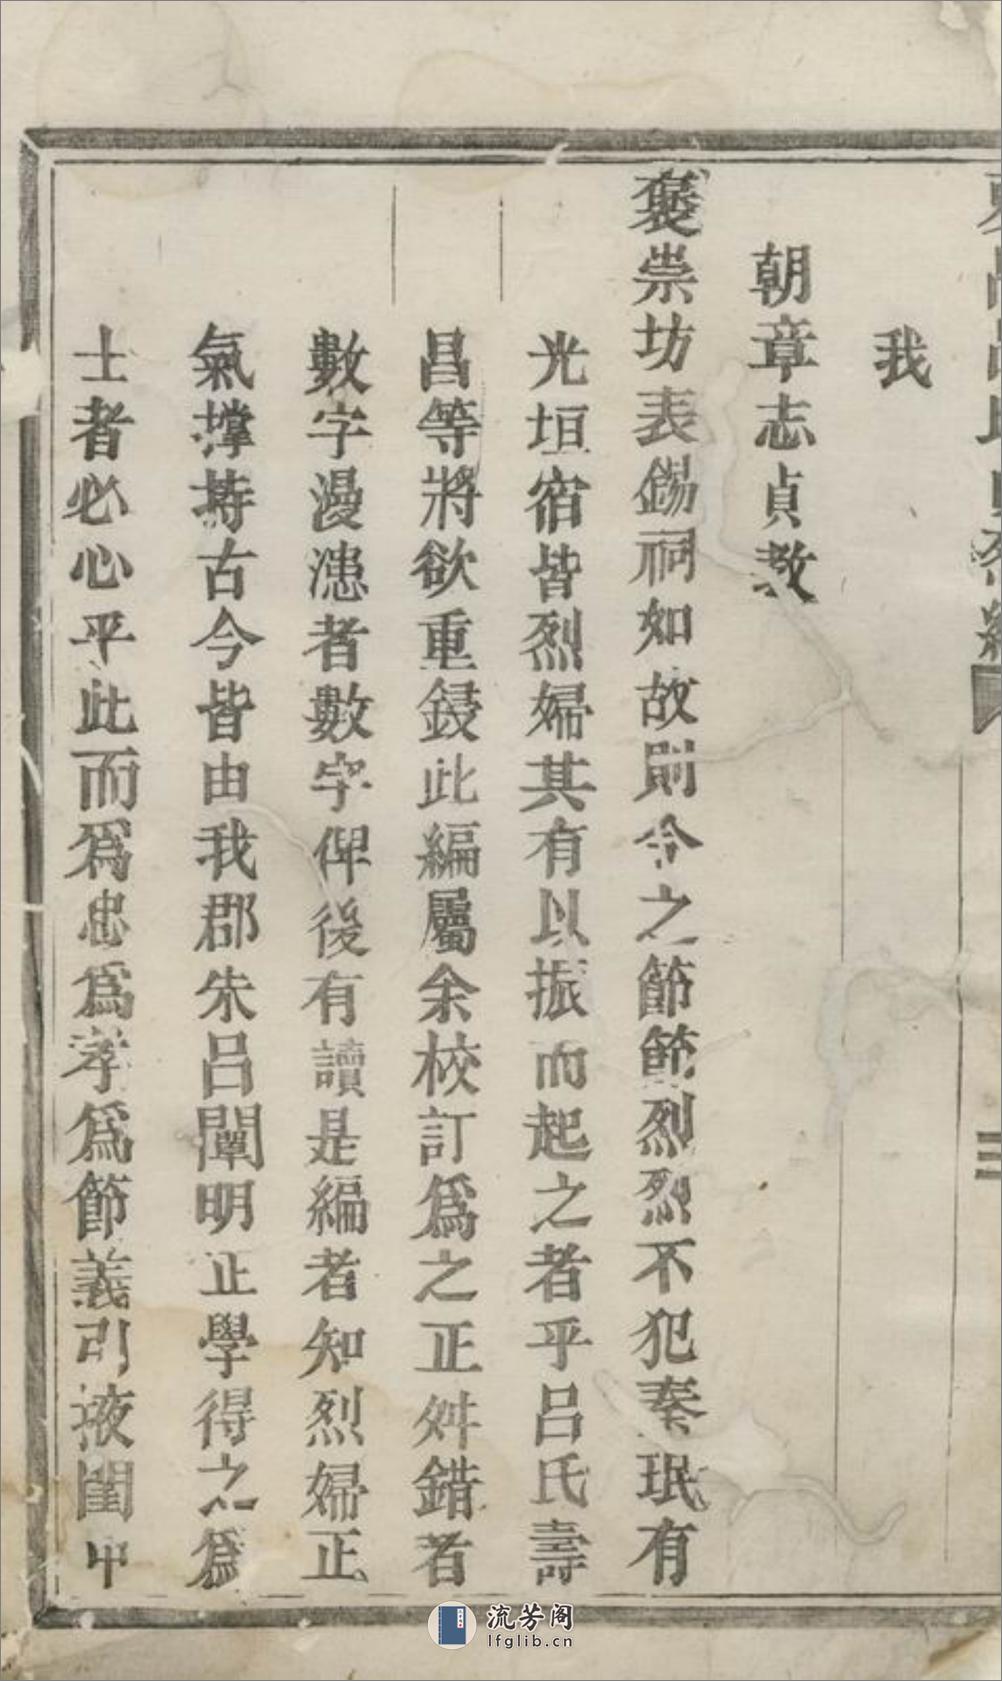 我
朝章志貞教
褒崇坊表錫祠如故則令之節節烈烈不犯秦珉有
光垣宿皆烈婦其有以振而起之者乎呂氏壽
昌等將欲重鋟此編屬余校訂爲之正舛錯者
數字漫漶者數字俾後有讀是編者知烈婦正
氣撐持古今皆由我郡朱呂闡明正學得之爲
士者必心平此而爲忠爲孝爲節義引液閨中
三
流芳阁
lfglib.cn